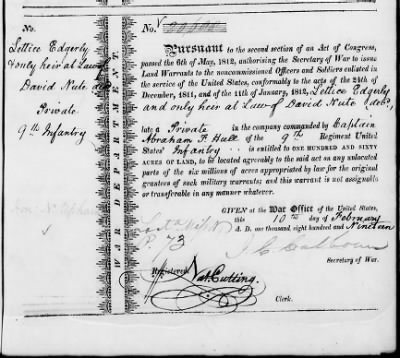 No.
Lettice Edgerly
& only heir at Law of
David Nute decd
Private
9th Infantry
WAR DEPARTMENT.
No.
Pursuant to the second section of an Act of Congress,
passed the 6th of May, 1812, authorising the Secretary of War to issue
Land Warrants to the noncommissioned Officers and Soldiers enlisted in
the service of the United States, conformably to the acts of the 24th of
December, 1811, and of the 11th of January, 1812, Lettice Edgerly
and only heir at Law of David Nute decd,
late a Private in the company commanded by Captain
Abraham F. Hull of the 9th Regiment United
States' Infantry is entitled to ONE HUNDRED AND SIXTY
ACRES OF LAND, to be located agreeably to the said act on any unlocated
parts of the six millions of acres appropriated by law for the original
grantees of such military warrants; and this warrant is not assignable
or transferable in any manner whatever.
GIVEN at the War Office of the United States,
this 10th day of February
A. D. one thousand eight hundred and Nineteen
P. 73
J. C. Calhoun
Secretary of War.
Registered Nat. Cutting.
Clerk.